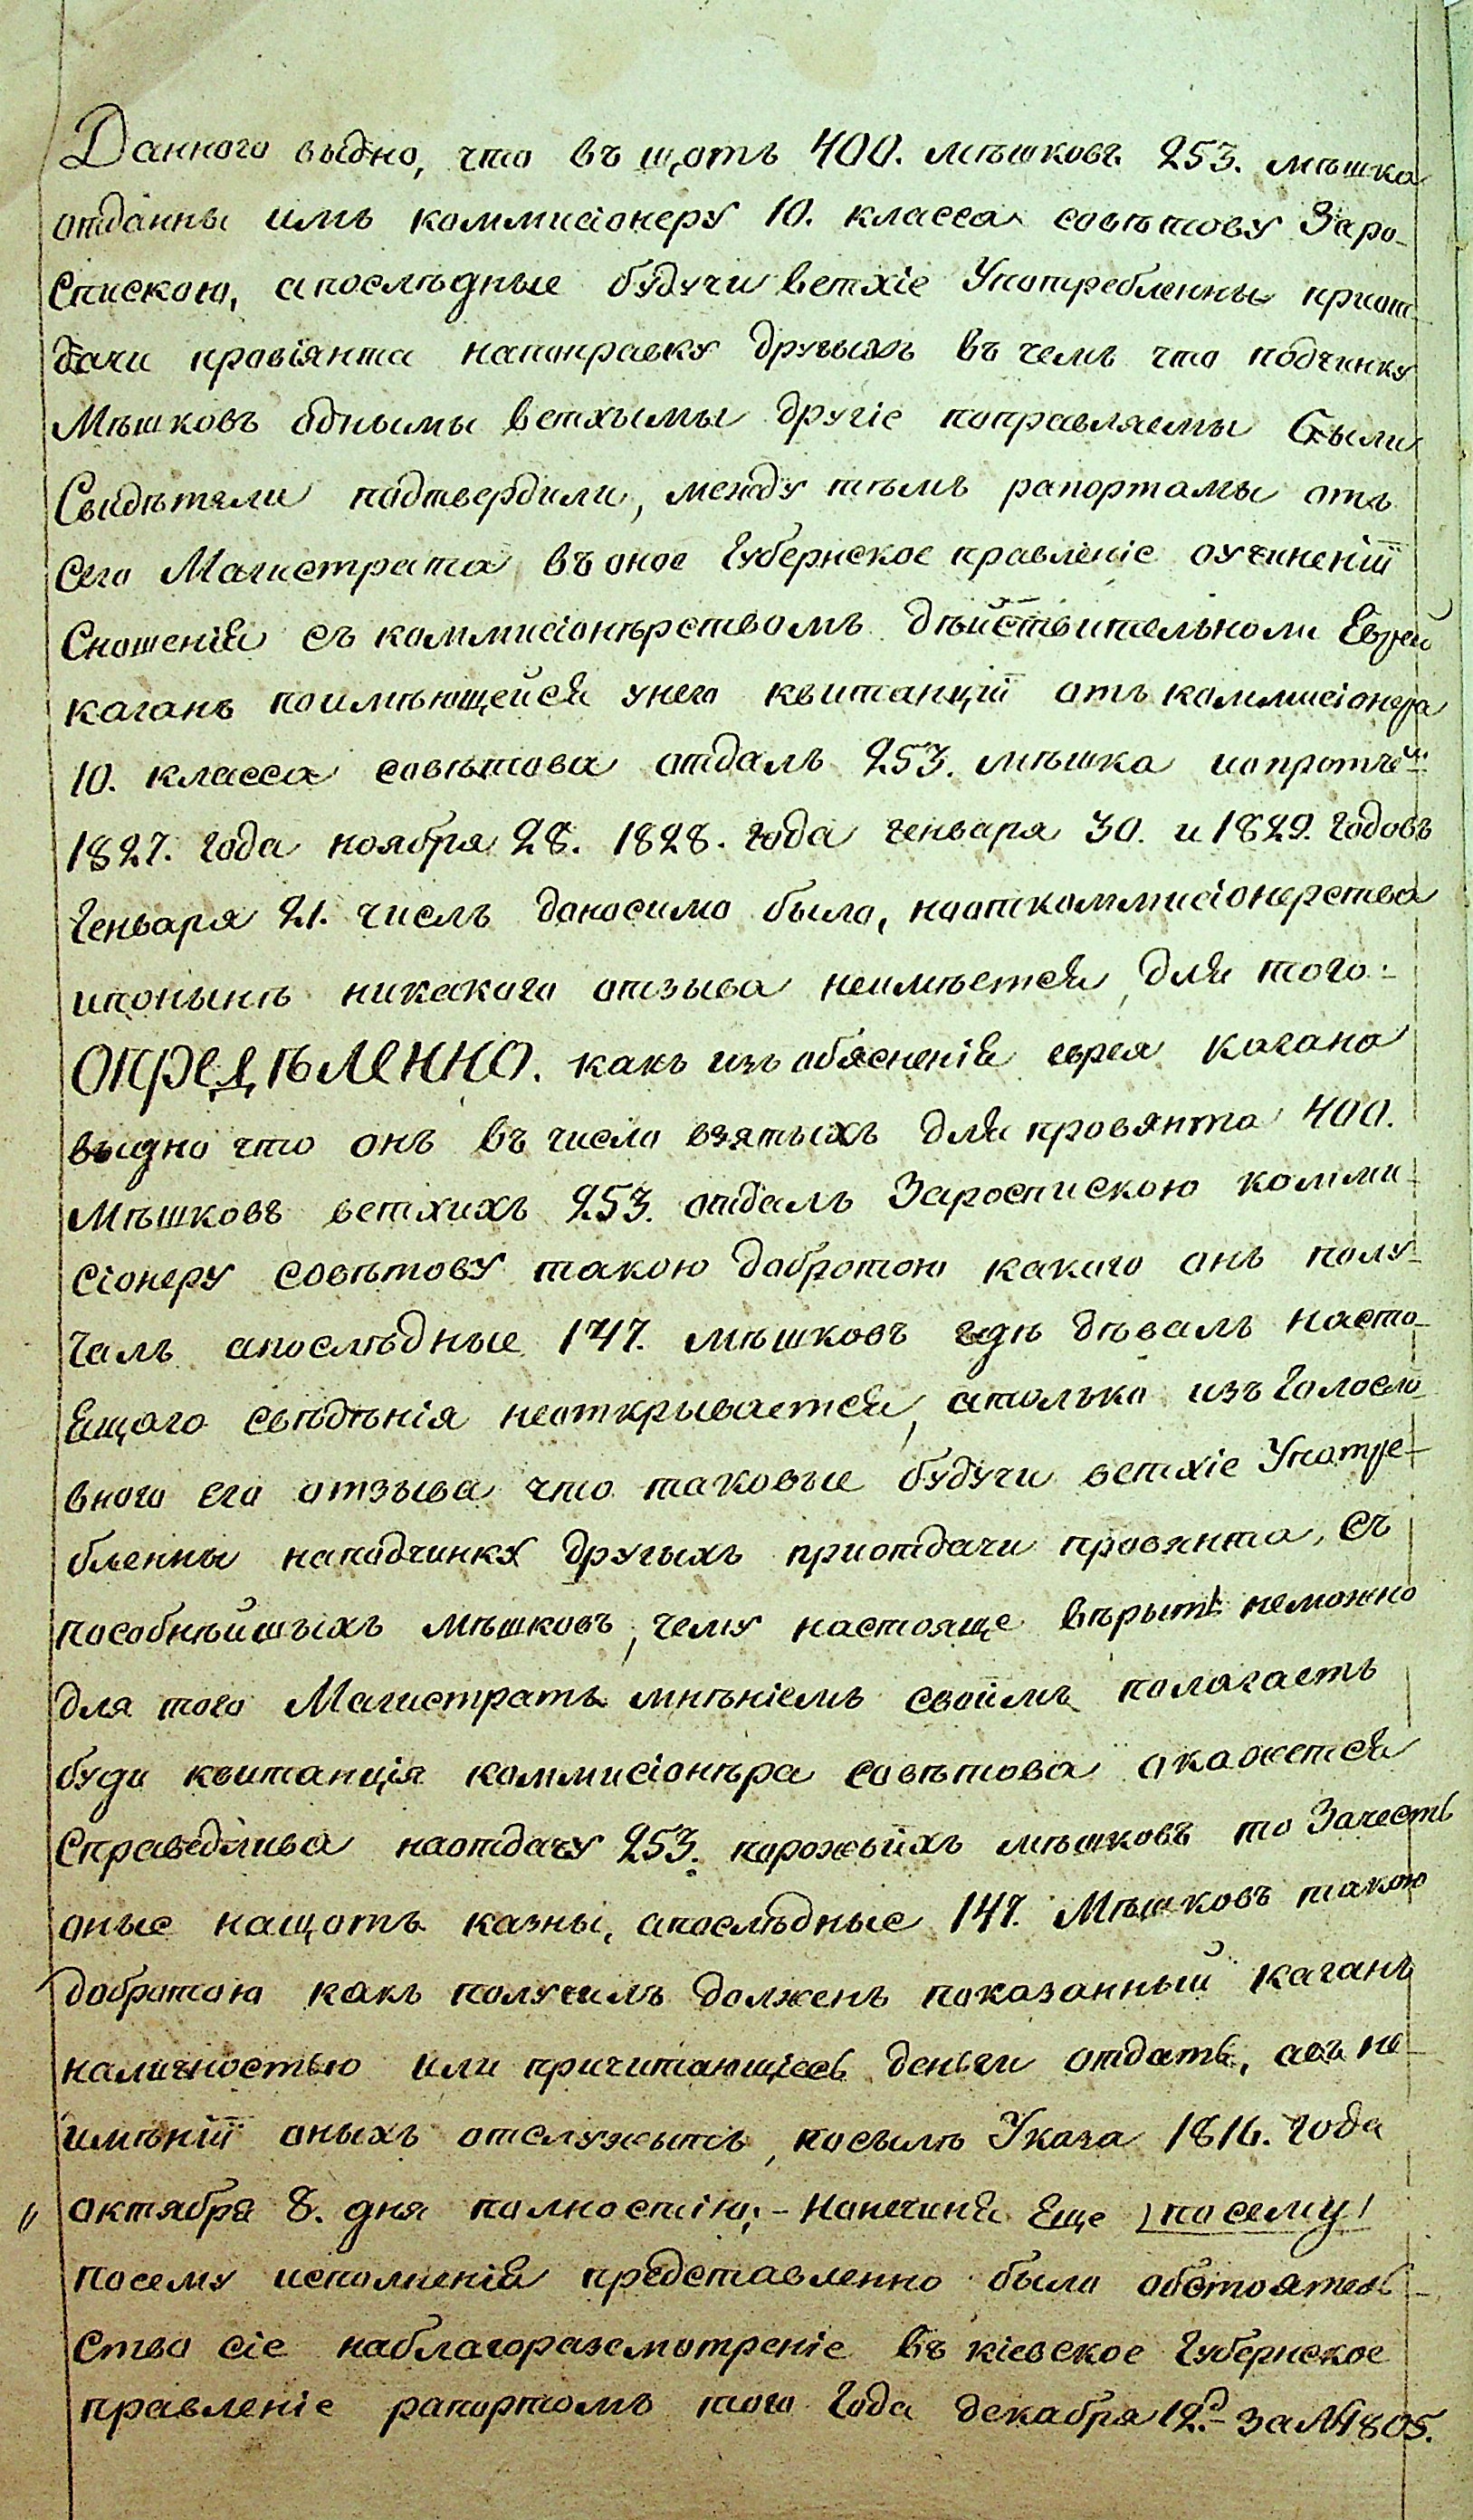 Данного выдно, что въ щотъ 400. мѣшковъ 253. мѣшка
отданны имъ коммисіонеру 10. класса совѣтову Заро-
спискою, апослѣдные будучи ветхіе Употребленны приот-
дачи провіянта напоправку другыхъ въ чемъ что подчинку
Мѣшковъ однымы ветхымы другіе поправляемы были
Свидѣтели подтвердили, между тѣмъ рапортамы отъ
сего Магистрата въ оное Губернское правленіе оучиненіи
Сношенія съ коммисіонѣрствомъ дѣйствительноли Еврей
каганъ поимѣющейся унего квитанціи отъ коммисіонера
10. класса совѣтова отдалъ 253. мѣшка ипротчеи
1827. года ноября 28. 1828. года генваря 30. и 1829. годовъ
Генваря 21. числъ доносимо было, нооткоммисіонерства
ипонынѣ никакого отзыва неимѣется, для того:
ОПРЕДѢЛЕННО. какъ изъ обясненія еврея кагана
выдно что онъ въ число взятыхъ для провянта 400.
Мѣшковъ ветхихъ 253. отдалъ Зароспискою комми-
сіонеру совѣтову такою добротою какиго онъ полу-
чалъ апослѣдные 147. мѣшковъ гдѣ дѣвалъ насто-
ящого свѣдѣнія неоткрывается, атолько изъ Голосло-
вного его отзыва что таковые будучи ветхіе Употре-
бленны наподчинку другыхъ приотдачи провянта, съ
пособнѣйшыхъ мѣшковъ, чему настояще вѣрыть неможно
для того Магистратъ мнѣніемъ своимъ полагаетъ
буди квитанція коммисіонѣра совѣтова окажется
Справедлива наотдачу 253. порожныхъ мѣшковъ то Зачесть
оные нащотъ казны, апослѣдные 147. Мѣшковъ такою
добротою какъ получилъ долженъ показанный каганъ
наличностью или причитающіесь деньги отдать, авъ не-
имѣніи оныхъ отслужыть, посылѣ Указа 1816. года
октября 8. дня полностію; - Нонечиня Еще посему
посему исполненія представленно было обстоятель-
ство сіе наблагоразсмотреніе въ кіевское Губернское
правленіе рапортомъ того Года декабря 12.го за № 1805.